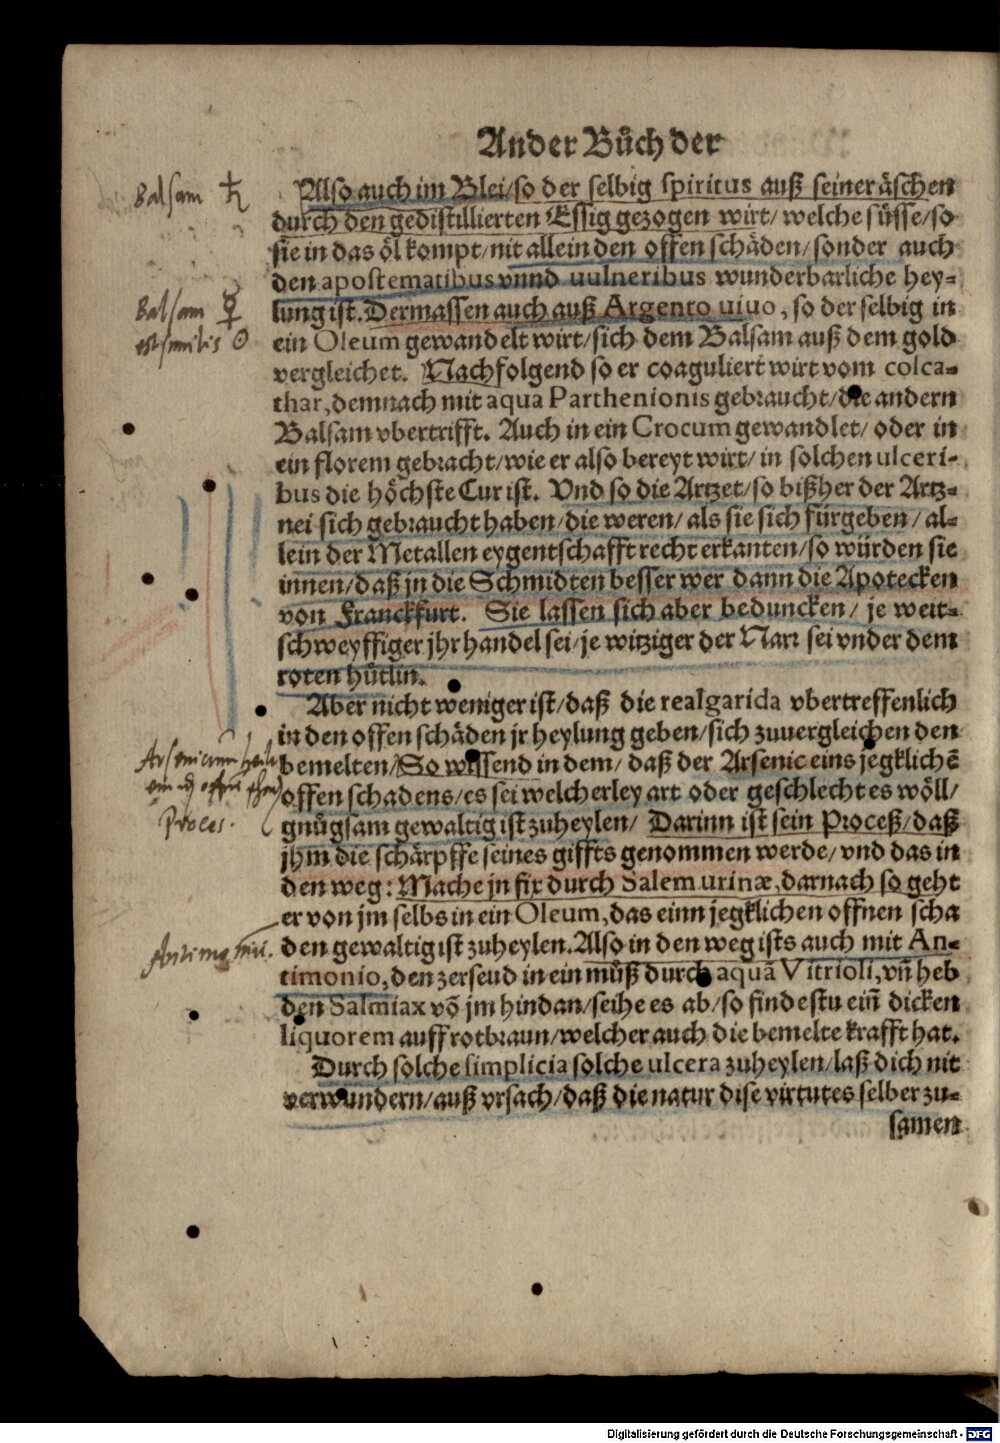 Ander Bůch der
Balsam ♄
Also auch im Blei/so der selbig spiritus auß seiner äschen
durch den gedistillierten Essig gezogen wirt/welche süsse/so
sie in das öl kompt/nit allein den offen schäden/sonder auch
den apostematibus vnnd uulneribus wunderbarliche hey⸗
Balsam ☿
lung ist. Dermassen auch auß Argento uiuo, so der selbig in
est similis ☉
ein Oleum gewandelt wirt/sich dem Balsam auß dem gold
vergleichet. Nachfolgend so er coaguliert wirt vom colca⸗
thar, demnach mit aqua Parthenionis gebraucht/die andern
Balsam vbertrifft. Auch in ein Crocum gewandlet/oder in
ein florem gebracht/wie er also bereyt wirt/in solchen ulceri-
bus die höchste Cur ist. Vnd so die Artzet/so bißher der Artz⸗
nei sich gebraucht haben/die weren/als sie sich fürgeben/al⸗
lein der Metallen eygentschafft recht erkanten/so würden sie
innen/daß jn die Schmidten besser wer dann die Apotecken
von Franckfurt. Sie lassen sich aber beduncken/je weit⸗
schweyffiger jhr handel sei/je witziger der Narr sei vnder dem
roten hůtlin.
Aber nicht weniger ist/daß die realgarida vbertreffenlich
in den offen schäden jr heylung geben/sich zuuergleichen den
Arsenicum heilt
bemelten/So wissend in dem/daß der Arsenic eins jegklichē
offen schadens/es sei welcherley art oder geschlecht es wöll/
Proces.
gnůgsam gewaltig ist zuheylen/Darinn ist sein Proceß/daß
jhm die schärpffe seines giffts genommen werde/vnd das in
den weg: Mache jn fix durch Salem urinæ, darnach so geht
er von jm selbs in ein Oleum, das einn jegklichen offnen scha
Antimonii.
den gewaltig ist zuheylen. Also in den weg ists auch mit An⸗
timonio, den zerseud in ein můß durch aquā Vitrioli, vn̄ heb
den Salmiax võ jm hindan/seihe es ab/so findestu ein̄ dicken
liquorem auff rotbraun/welcher auch die bemelte krafft hat.
Durch solche simplicia solche ulcera zuheylen/laß dich nit
verwundern/auß vrsach/daß die natur dise virtutes selber zu⸗
samen
Digitalisierung gefördert durch die Deutsche Forschungsgemeinschaft - DFG